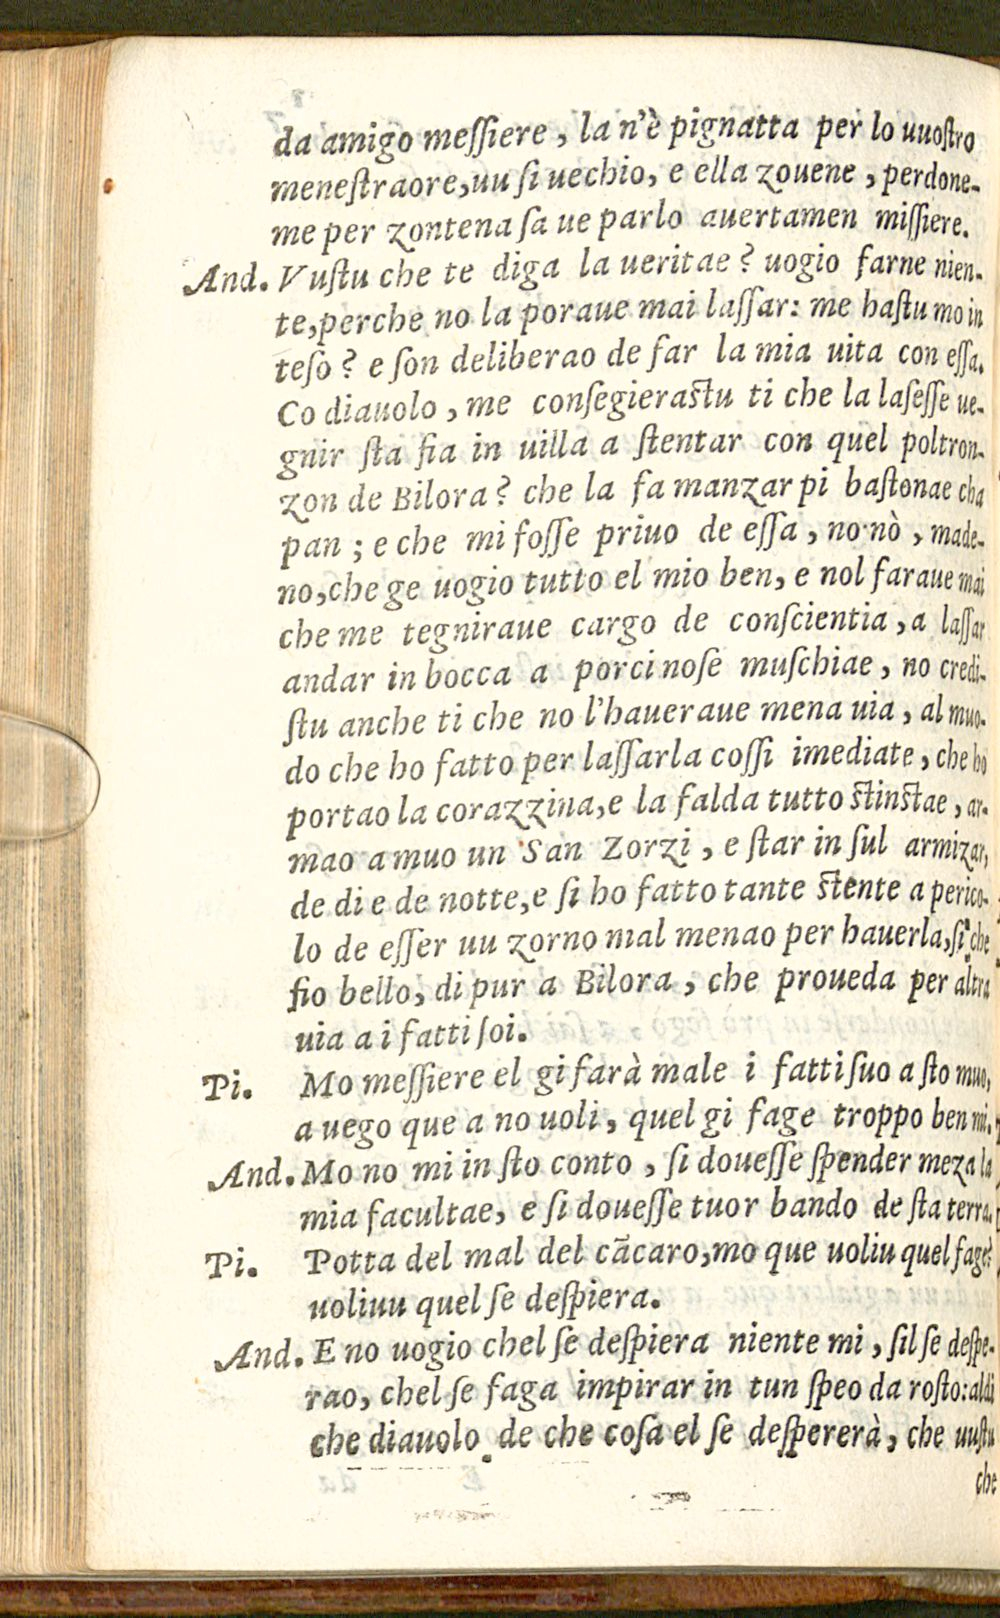 da amigo meſſiere, la n'è pignatta per lo uuoſtro
meneſtraore,uu ſi uechio, e ella zouene, perdone-
me per zontena ſa ue parlo auertamen miſſiere.
And. Vuſtu che te diga la ueritae? uogio farne nien-
te,perche no la poraue mai laſſar: me haſtu mo in
teſo? e ſon deliberao de far la mia uita con eſſa.
Co diauolo, me conſegieraſtu ti che la laſeſſe ue-
gnir ſta fia in uilla a ſtentar con quel poltron-
zon de Bilora? che la fa manzar pi baſtonae cha
pan; e che mi foſſe priuo de eſſa, no nò, made-
no,che ge uogio tutto el mio ben, e nol faraue mai
che me tegniraue cargo de conſcientia, a laſſar
andar in bocca a porci noſe muſchiae, no credi-
ſtu anche ti che no l'haueraue mena uia, al muo-
do che ho fatto per laſſarla coſſi imediate, che ho
portao la corazzina,e la falda tutto ſtinſtae, ar-
mao a muo un San Zorzi, e ſtar in ſul armizar,
de di e de notte,e ſi ho fatto tante ſtente a perico-
lo de eſſer uu zorno mal menao per hauerla,ſi che
fio bello, di pur a Bilora, che proueda per altra
uia a i fatti ſoi.
Pi. Mo meſſiere el gi farà male i fatti ſuo a ſto muo,
a uego que a no uoli, quel gi fage troppo ben mi.
And. Mo no mi in ſto conto, ſi doueſſe ſpender meza la
mia facultae, e ſi doueſſe tuor bando de ſta terra.
Pi. Potta del mal del cãcaro,mo que uoliu quel fage?
uoliuu quel ſe deſpiera.
And. E no uogio chel ſe deſpiera niente mi, ſil ſe deſpe-
rao, chel ſe faga impirar in tun ſpeo da roſto: aldi
che diauolo de che coſa el ſe deſpererà, che uuſtu
che